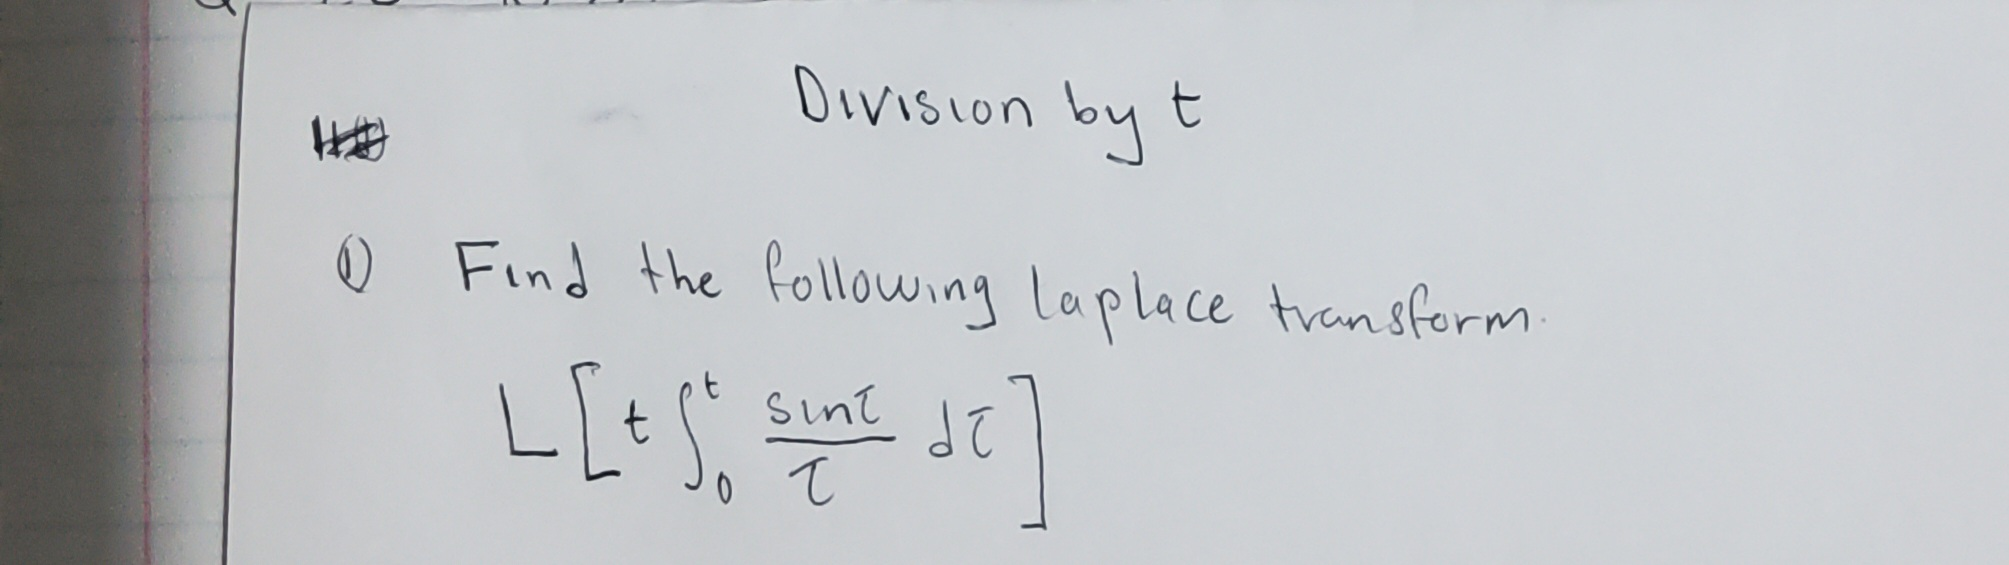 Division by t
① Find the following laplace transform.
L[t ∫₀ᵗ sinτ/τ dτ]